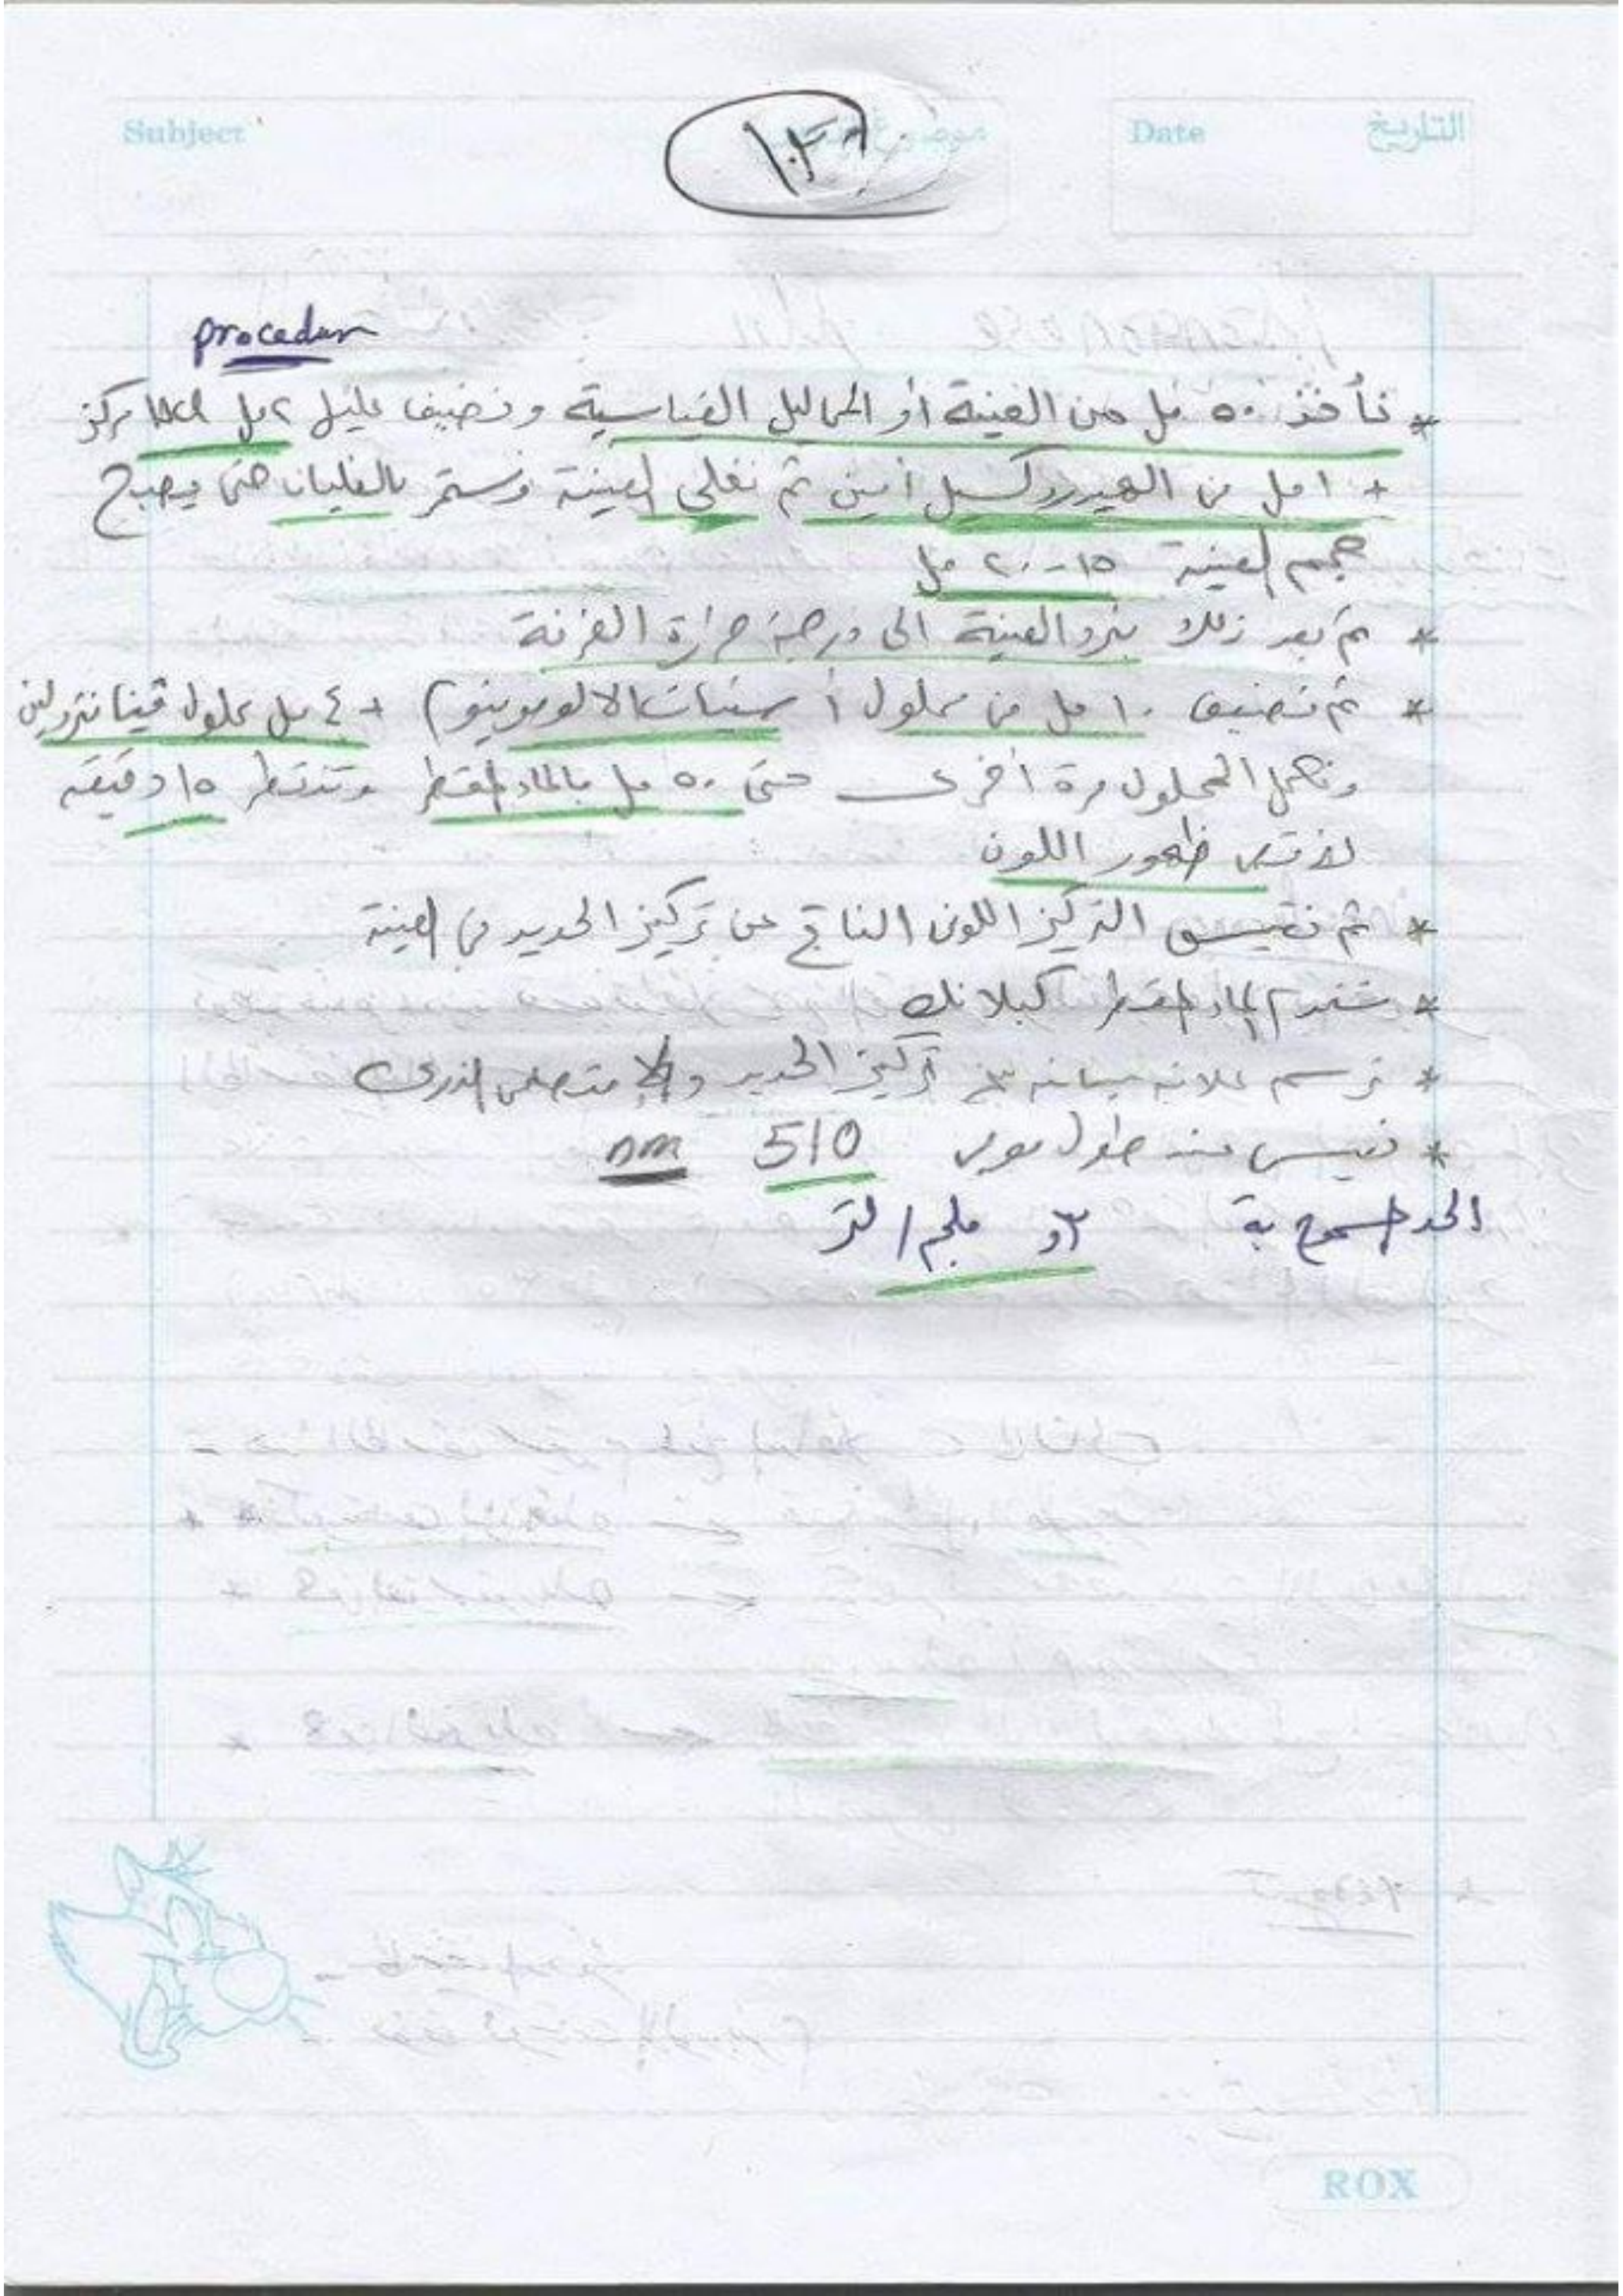 Subject
Date التاريخ
procedur
* نأخذ ٥٠ مل من العينة أو المحاليل القياسية ونضيف عليها ٢ مل HCl مركز
+ ١ مل من الهيدروكسيل أمين ثم نغلى العينة ونستمر بالغليان حتى يصبح
حجم العينة ١٥-٢٠ مل
* ثم بعد ذلك نبرد العينة الى درجة حرارة الغرفة
* ثم نضيف ١٠ مل من محلول أسيتات الامونيوم + ٤ مل محلول فينانثرولين
ونكمل المحلول مرة أخرى حتى ٥٠ مل بالماء المقطر وننتظر ١٥ دقيقة
ظهور اللون
* ثم نقيس التركيز اللونى الناتج عن تركيز الحديد فى العينة
* نستخدم الماء المقطر كبلانك
* نرسم علاقة بيانية بين تركيز الحديد والامتصاص الذرى
* نقيس عند طول موجى 510 nm
الحد المسموح به ٣و ملجم / لتر
ROX